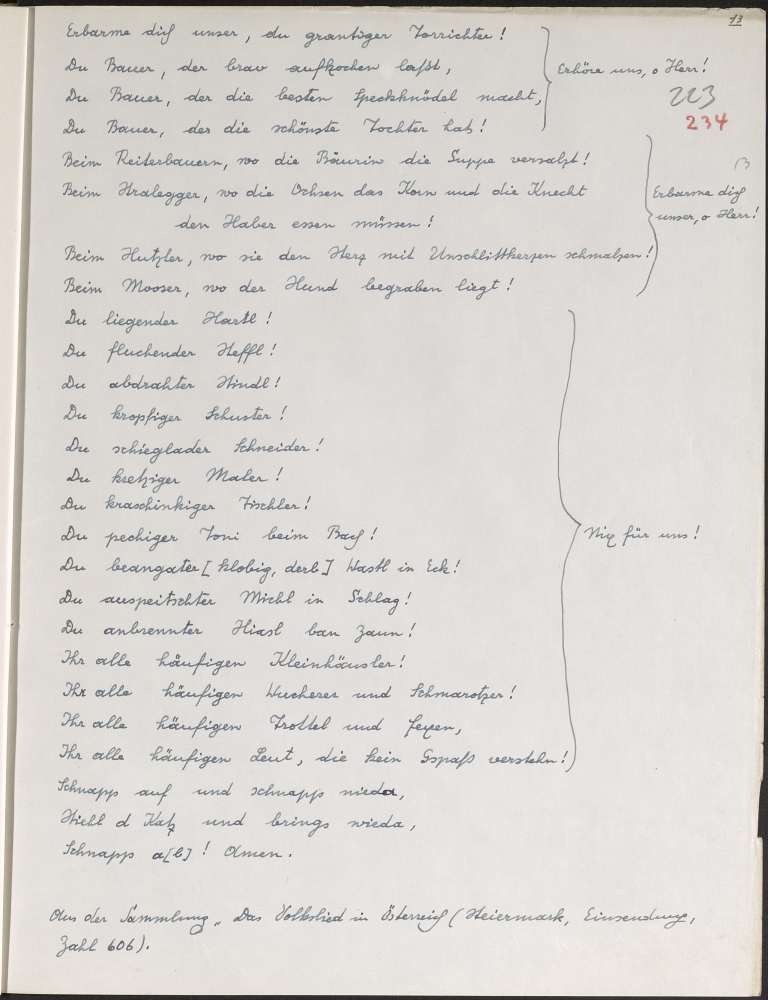 13
Erbarme dich unser, du grantiger Torrichter!
Du Bauer, der brav aufkochen laßt,
Erhöre uns, o Herr!
Du Bauer, der die besten Speckknödel macht,
223
234
Du Bauer, der die schönste Tochter hat!
Beim Reiterbauern, wo die Bäurin die Suppe versalzt!
13
Beim Stralegger, wo die Ochsen das Korn und die Knecht
Erbarme dich
den Haber essen müssen!
unser, o Herr!
Beim Hutzler, wo sie den Herz mit Unschlittkerzen schmalzen!
Beim Mooser, wo der Hund begraben liegt!
Du liegender Hartl!
Du fluchender Steffl!
Du abdrahter Windl!
Du kropfiger Schuster!
Du schieglader Schneider!
Du kretziger Maler!
Du kraschinkiger Tischler!
Du pechiger Toni beim Bach!
Nix für uns!
Du beangater [klobig, derb] Wastl in Eck!
Du auspeitschter Michl in Schlag!
Du anbrennter Hiasl ban Zaun!
Ihr alle häufigen Kleinhäusler!
Ihr alle häufigen Wucherer und Schmarotzer!
Ihr alle häufigen Trottel und Fexen,
Ihr alle häufigen Leut, die kein Gspaß verstehn!
Schnapp auf und schnapp nieda,
Stiehl d Katz und brings wieda,
Schnapp a[b]! Amen.
Aus der Sammlung „Das Volkslied in Österreich (Steiermark, Einsendung,
Zahl 606).